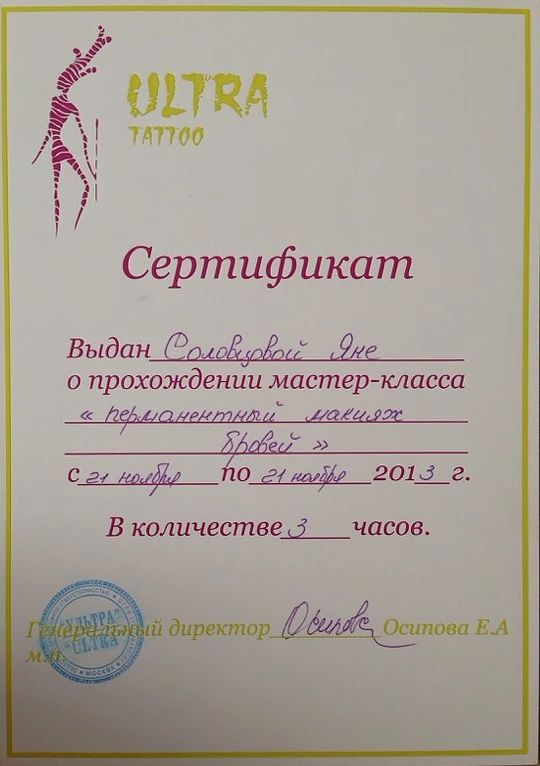 ULTRA
TATTOO
Сертификат
Выдан Соловцовой Яне
о прохождении мастер-класса
« перманентный макияж
бровей »
с 21 ноября по 21 ноября 2013 г.
В количестве 3 часов.
"УЛЬТРА"
"ULTRA"
МОСКВА
Генеральный директор Осипова Осипова Е.А
м.п.